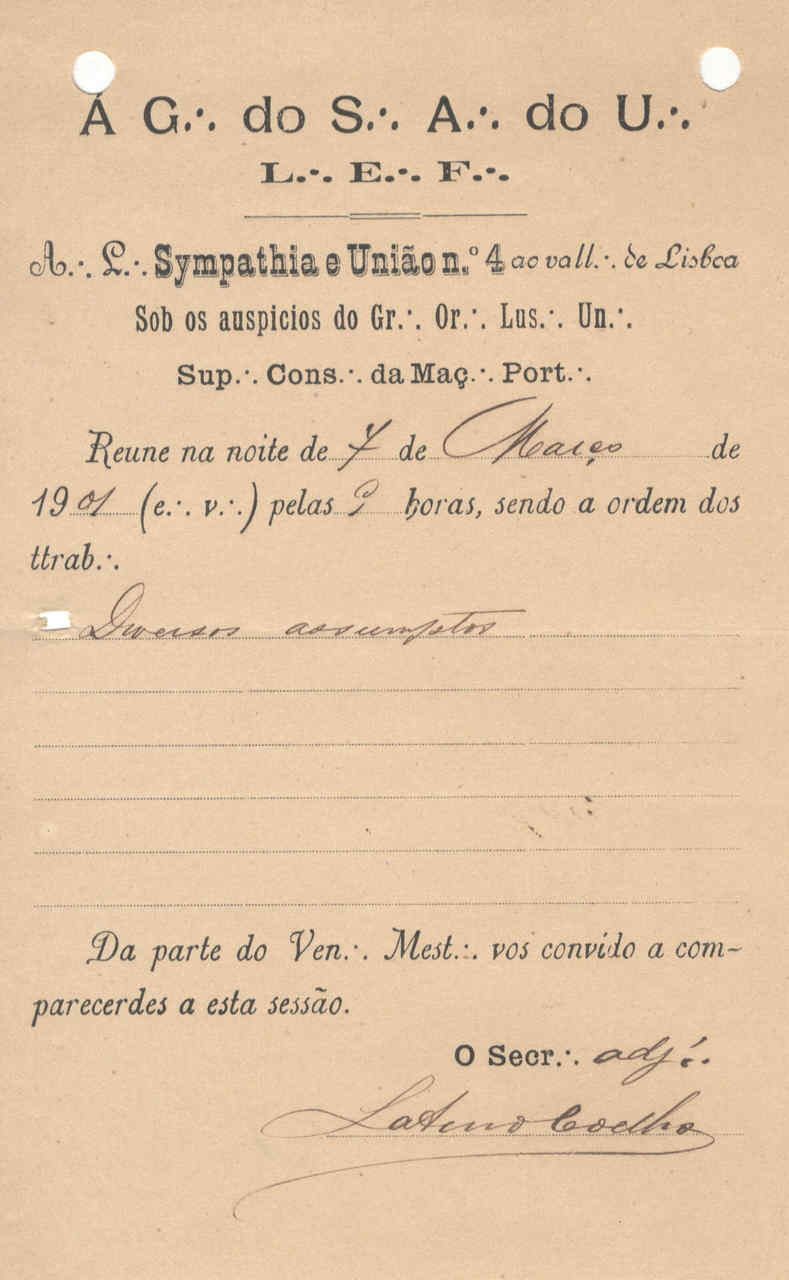 Á G.·. do S.·. A.·. do U.·.
L.·. E.·. F.·.
A.·. L.·. Sympathia e União n.º 4 ao vall.·. de Lisboa
Sob os auspicios do Gr.·. Or.·. Lus.·. Un.·.
Sup.·. Cons.·. da Maç.·. Port.·.
Reune na noite de 7 de Março de
1901 (e.·. v.·.) pelas 9 horas, sendo a ordem dos
ttrab.·.
Diversos assumptos
Da parte do Ven.·. Mest.·. vos convido a com-
parecerdes a esta sessão.
O Secr.·. adj.·.
Latino Coelho